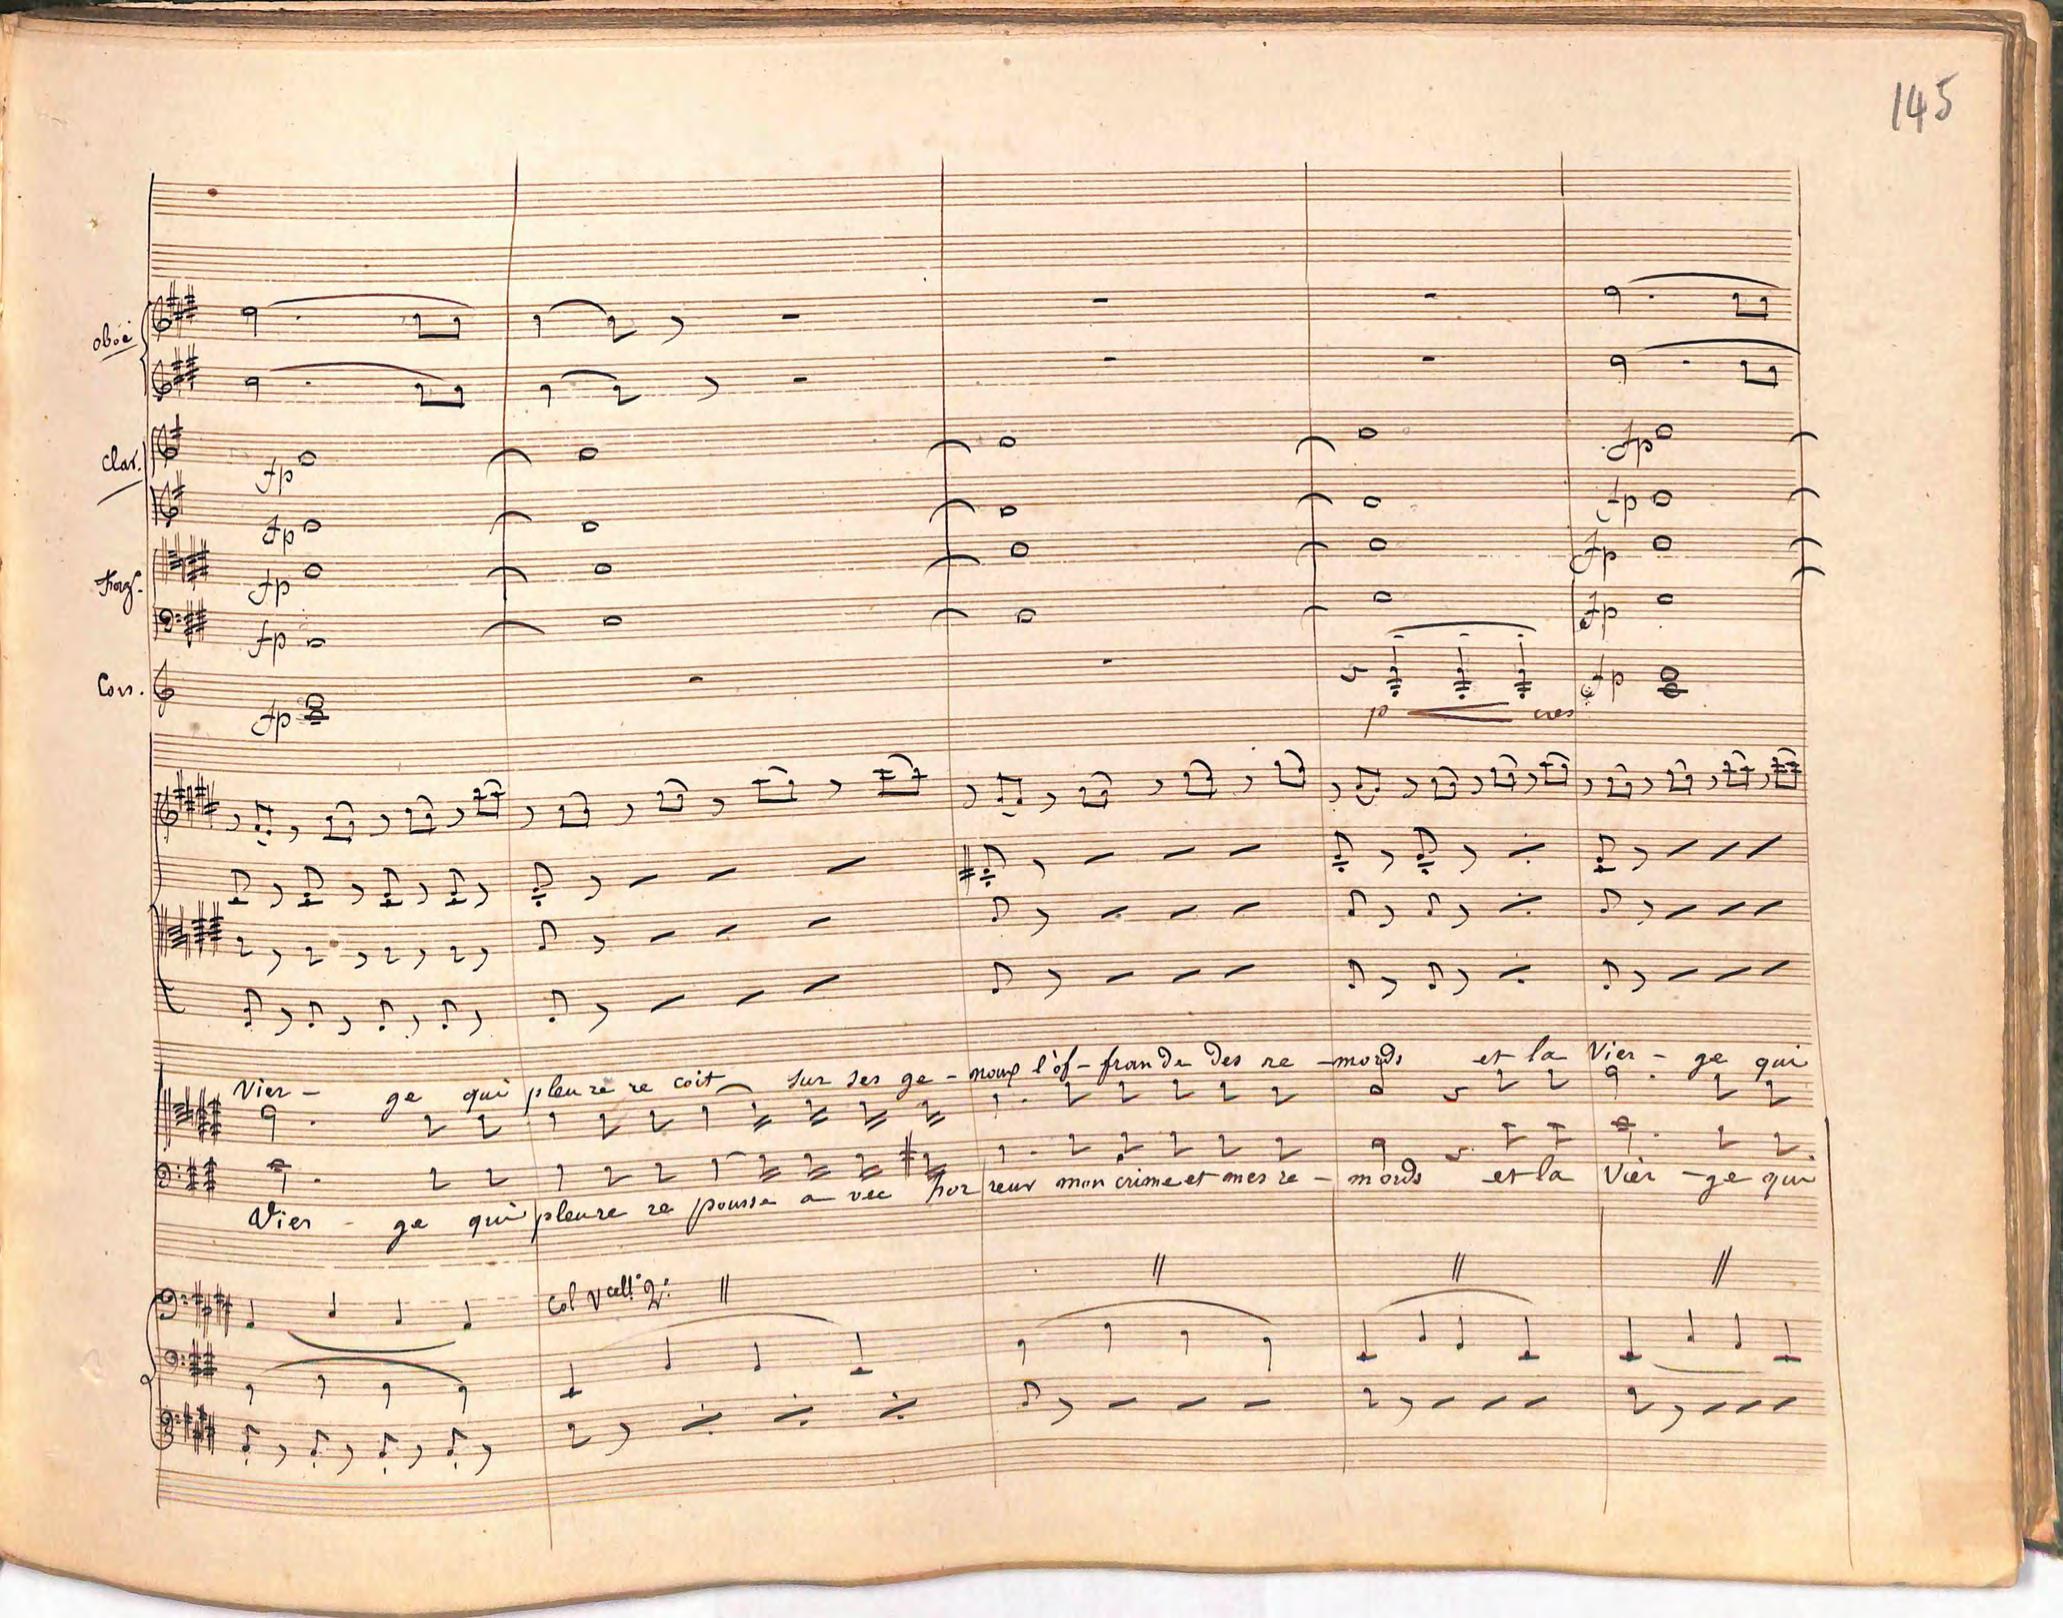 145
oboë
Clar.
fp fp
fp fp
Fag.
fp fp
fp fp
Cor.
fp p cres fp
Vier - ge qui pleure re coit sur ses ge - noux l'of - fran de des re - mords et la Vier - ge qui
Vier - ge qui pleure re pousse a vec hor reur mon crime et mes re - mords et la Vier - ge qui
Col Vcell. 2º: